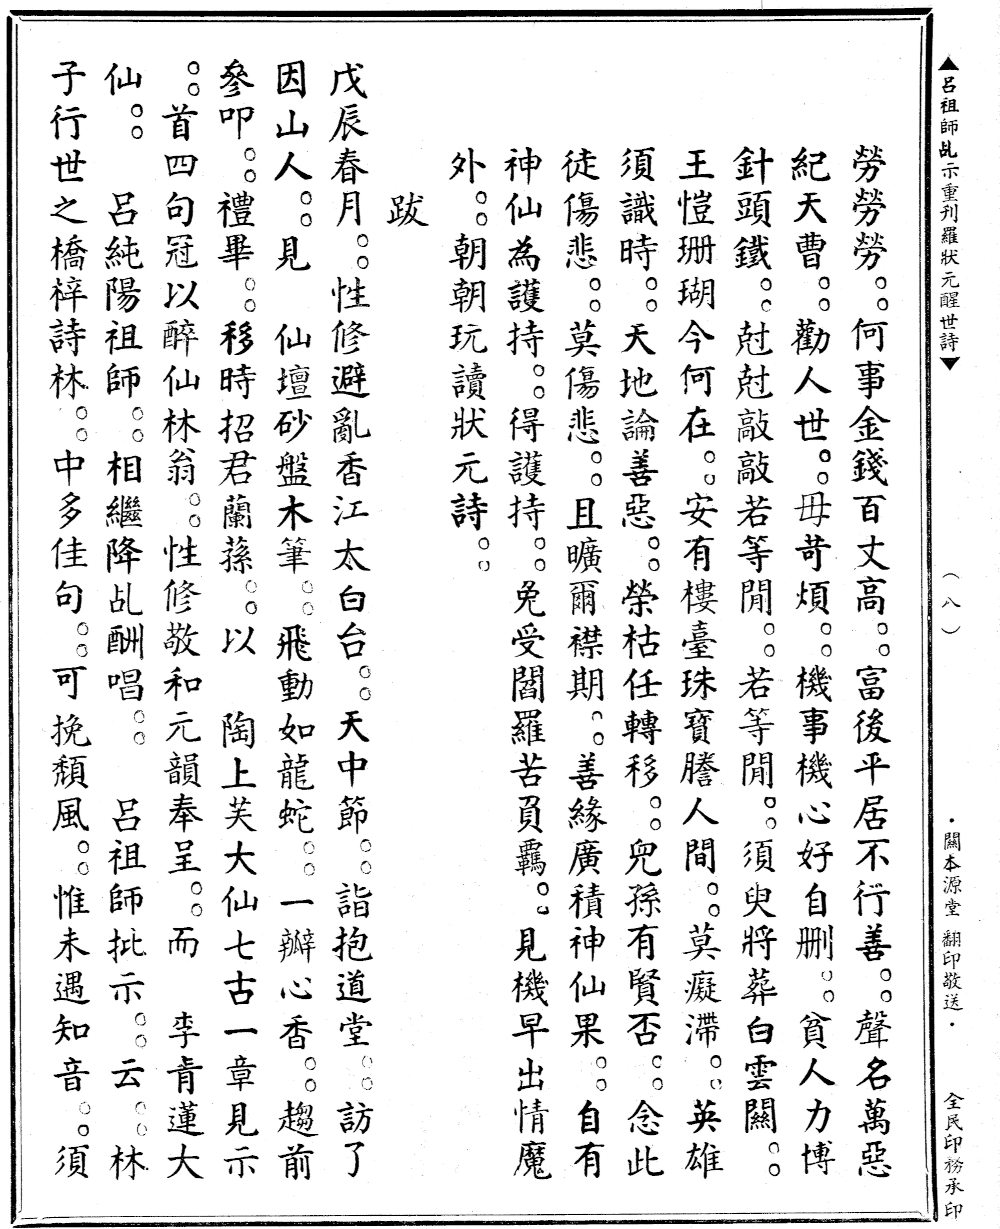 ▲呂祖師乩示重刋羅狀元醒世詩▼ （八） ·關本源堂 翻印敬送· 全民印務承印
勞勞勞。。何事金錢百丈高。。富後平居不行善。。聲名萬惡
紀天曹。。勸人世。。毋苛煩。。機事機心好自删。。貧人力博
針頭鐵。。尅尅敲敲若等閒。。若等閒。。須臾將葬白雲關。。
王愷珊瑚今何在。。安有樓臺珠寶謄人間。。莫癡滯。。英雄
須識時。。天地論善惡。。榮枯任轉移。。兒孫有賢否。。念此
徒傷悲。。莫傷悲。。且曠爾襟期。。善緣廣積神仙果。。自有
神仙為護持。。得護持。。免受閻羅苦頁羈。。見機早出情魔
外。。朝朝玩讀狀元詩。。
跋
戊辰春月。。性修避亂香江太白台。。天中節。。詣抱道堂。。訪了
因山人。。見　仙壇砂盤木筆。。飛動如龍蛇。。一瓣心香。。趨前
參叩。。禮畢。。移時招君蘭蓀。。以　陶上芙大仙七古一章見示
。。首四句冠以醉仙林翁。。性修敬和元韻奉呈。。而　李青蓮大
仙。。　呂純陽祖師。。相繼降乩酬唱。。　呂祖師批示。。云。。林
子行世之橋梓詩林。。中多佳句。。可挽頽風。。惟未遇知音。。須